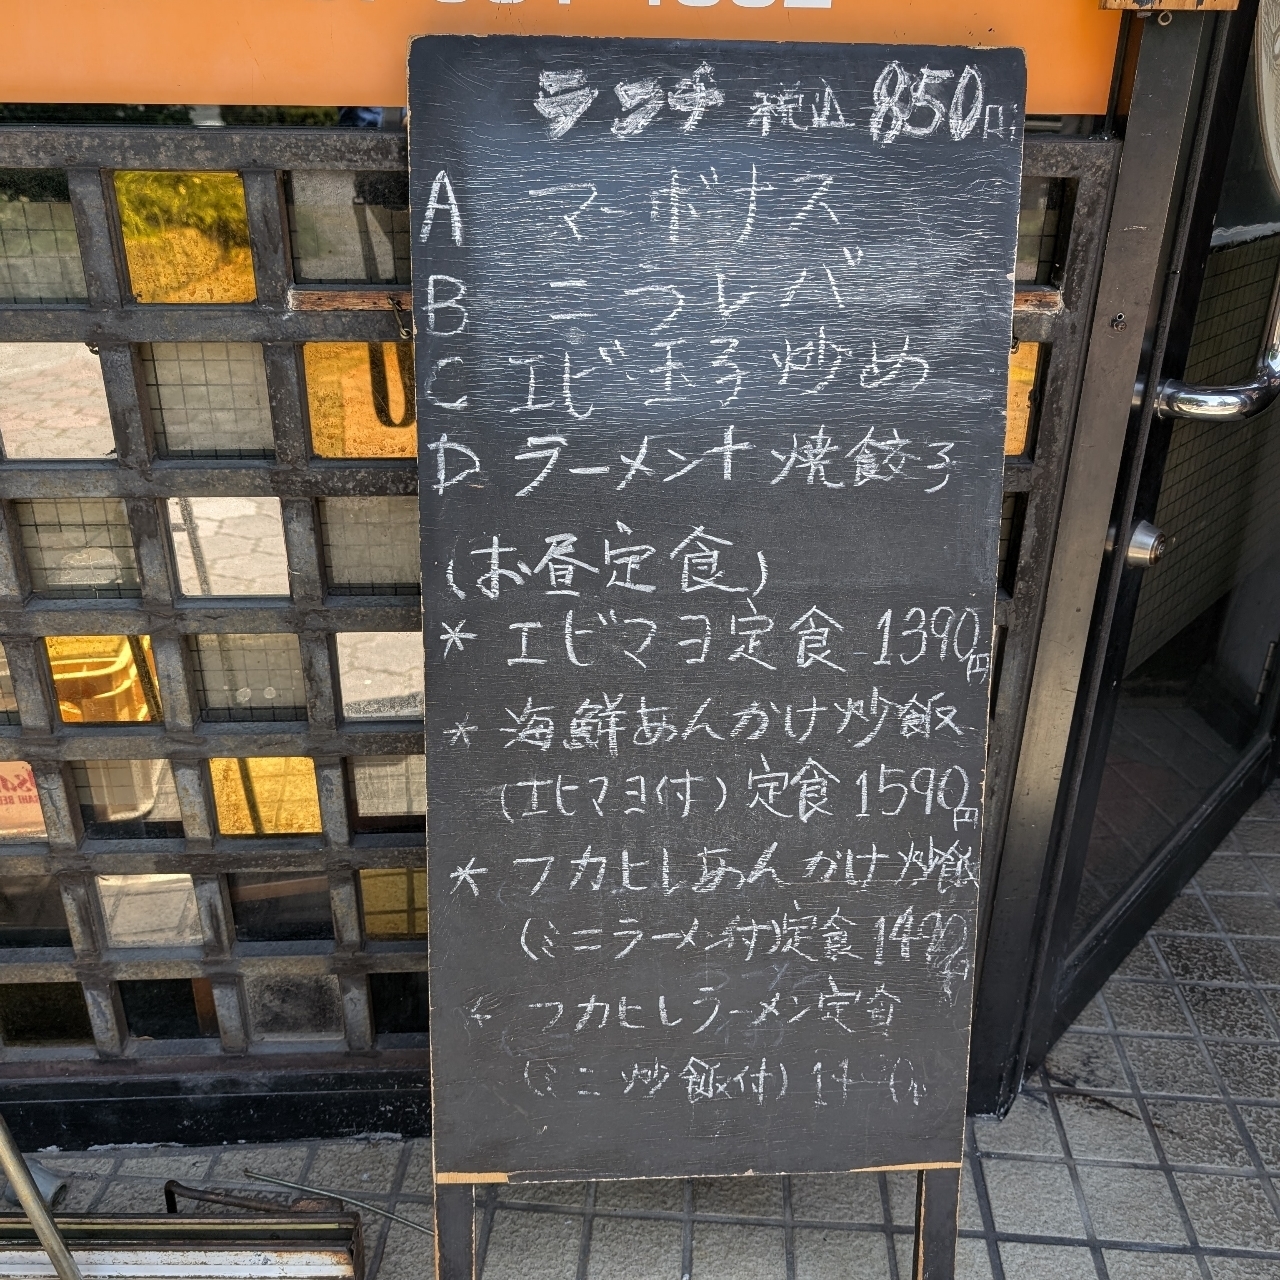 ランチ 税込 850円
A マーボナス
B ニラレバ
C エビ玉子炒め
D ラーメン+焼餃子
(お昼定食)
* エビマヨ定食 1390円
* 海鮮あんかけ炒飯
(エビマヨ付)定食1590円
* フカヒレあんかけ炒飯
(ミニラーメン付)定食 1490円
* フカヒレラーメン定食
(ミニ炒飯付)